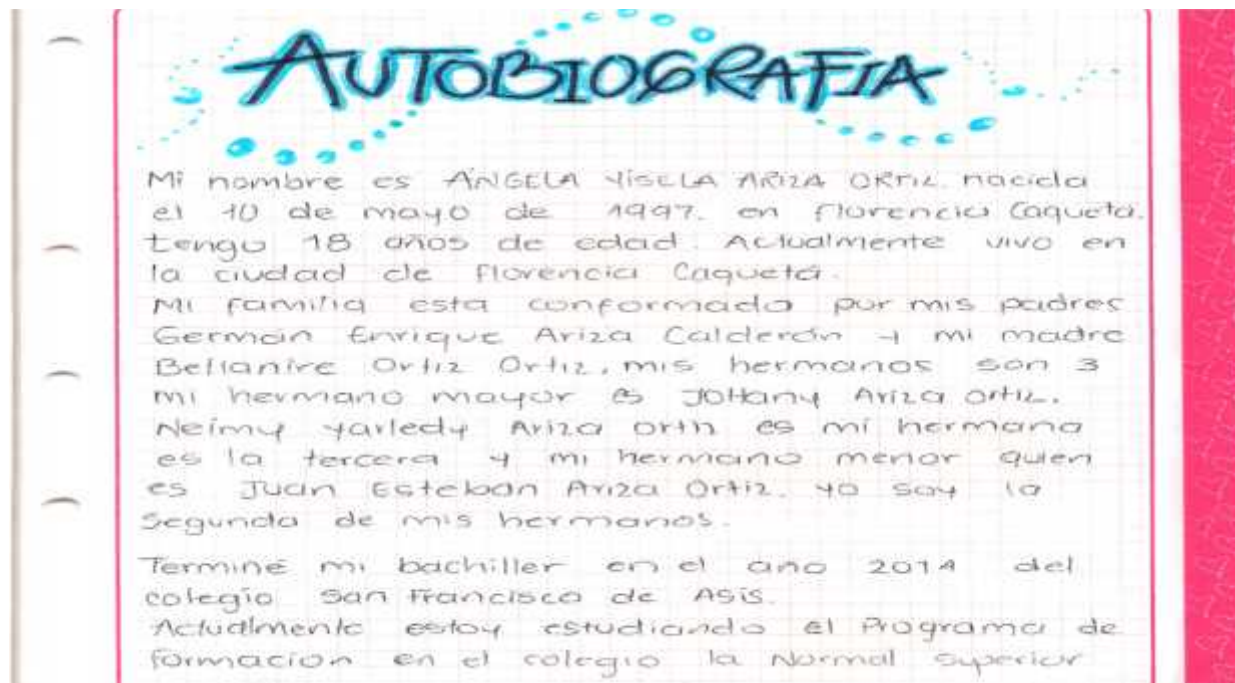 AUTOBIOGRAFIA
Mi nombre es ANGELA YISELA ARIZA ORTIZ. nacida
el 10 de mayo de 1997. en florencia Caqueta.
tengo 18 años de edad. Actualmente vivo en
la ciudad de florencia Caquetá.
Mi familia esta conformada por mis padres
Germán Enrique Ariza Calderón y mi madre
Bellanire Ortiz Ortiz, mis hermanos son 3
mi hermano mayor es JOHany Ariza ortiz.
Neimy yarledy Ariza ortiz es mi hermana
es la tercera y mi hermano menor quien
es Juan Esteban Ariza Ortiz. yo soy la
Segunda de mis hermanos.
Terminé mi bachiller en el año 2014 del
colegio San Francisco de Asis.
Actualmente estoy estudiando el Programa de
formacion en el colegio la Normal Superior